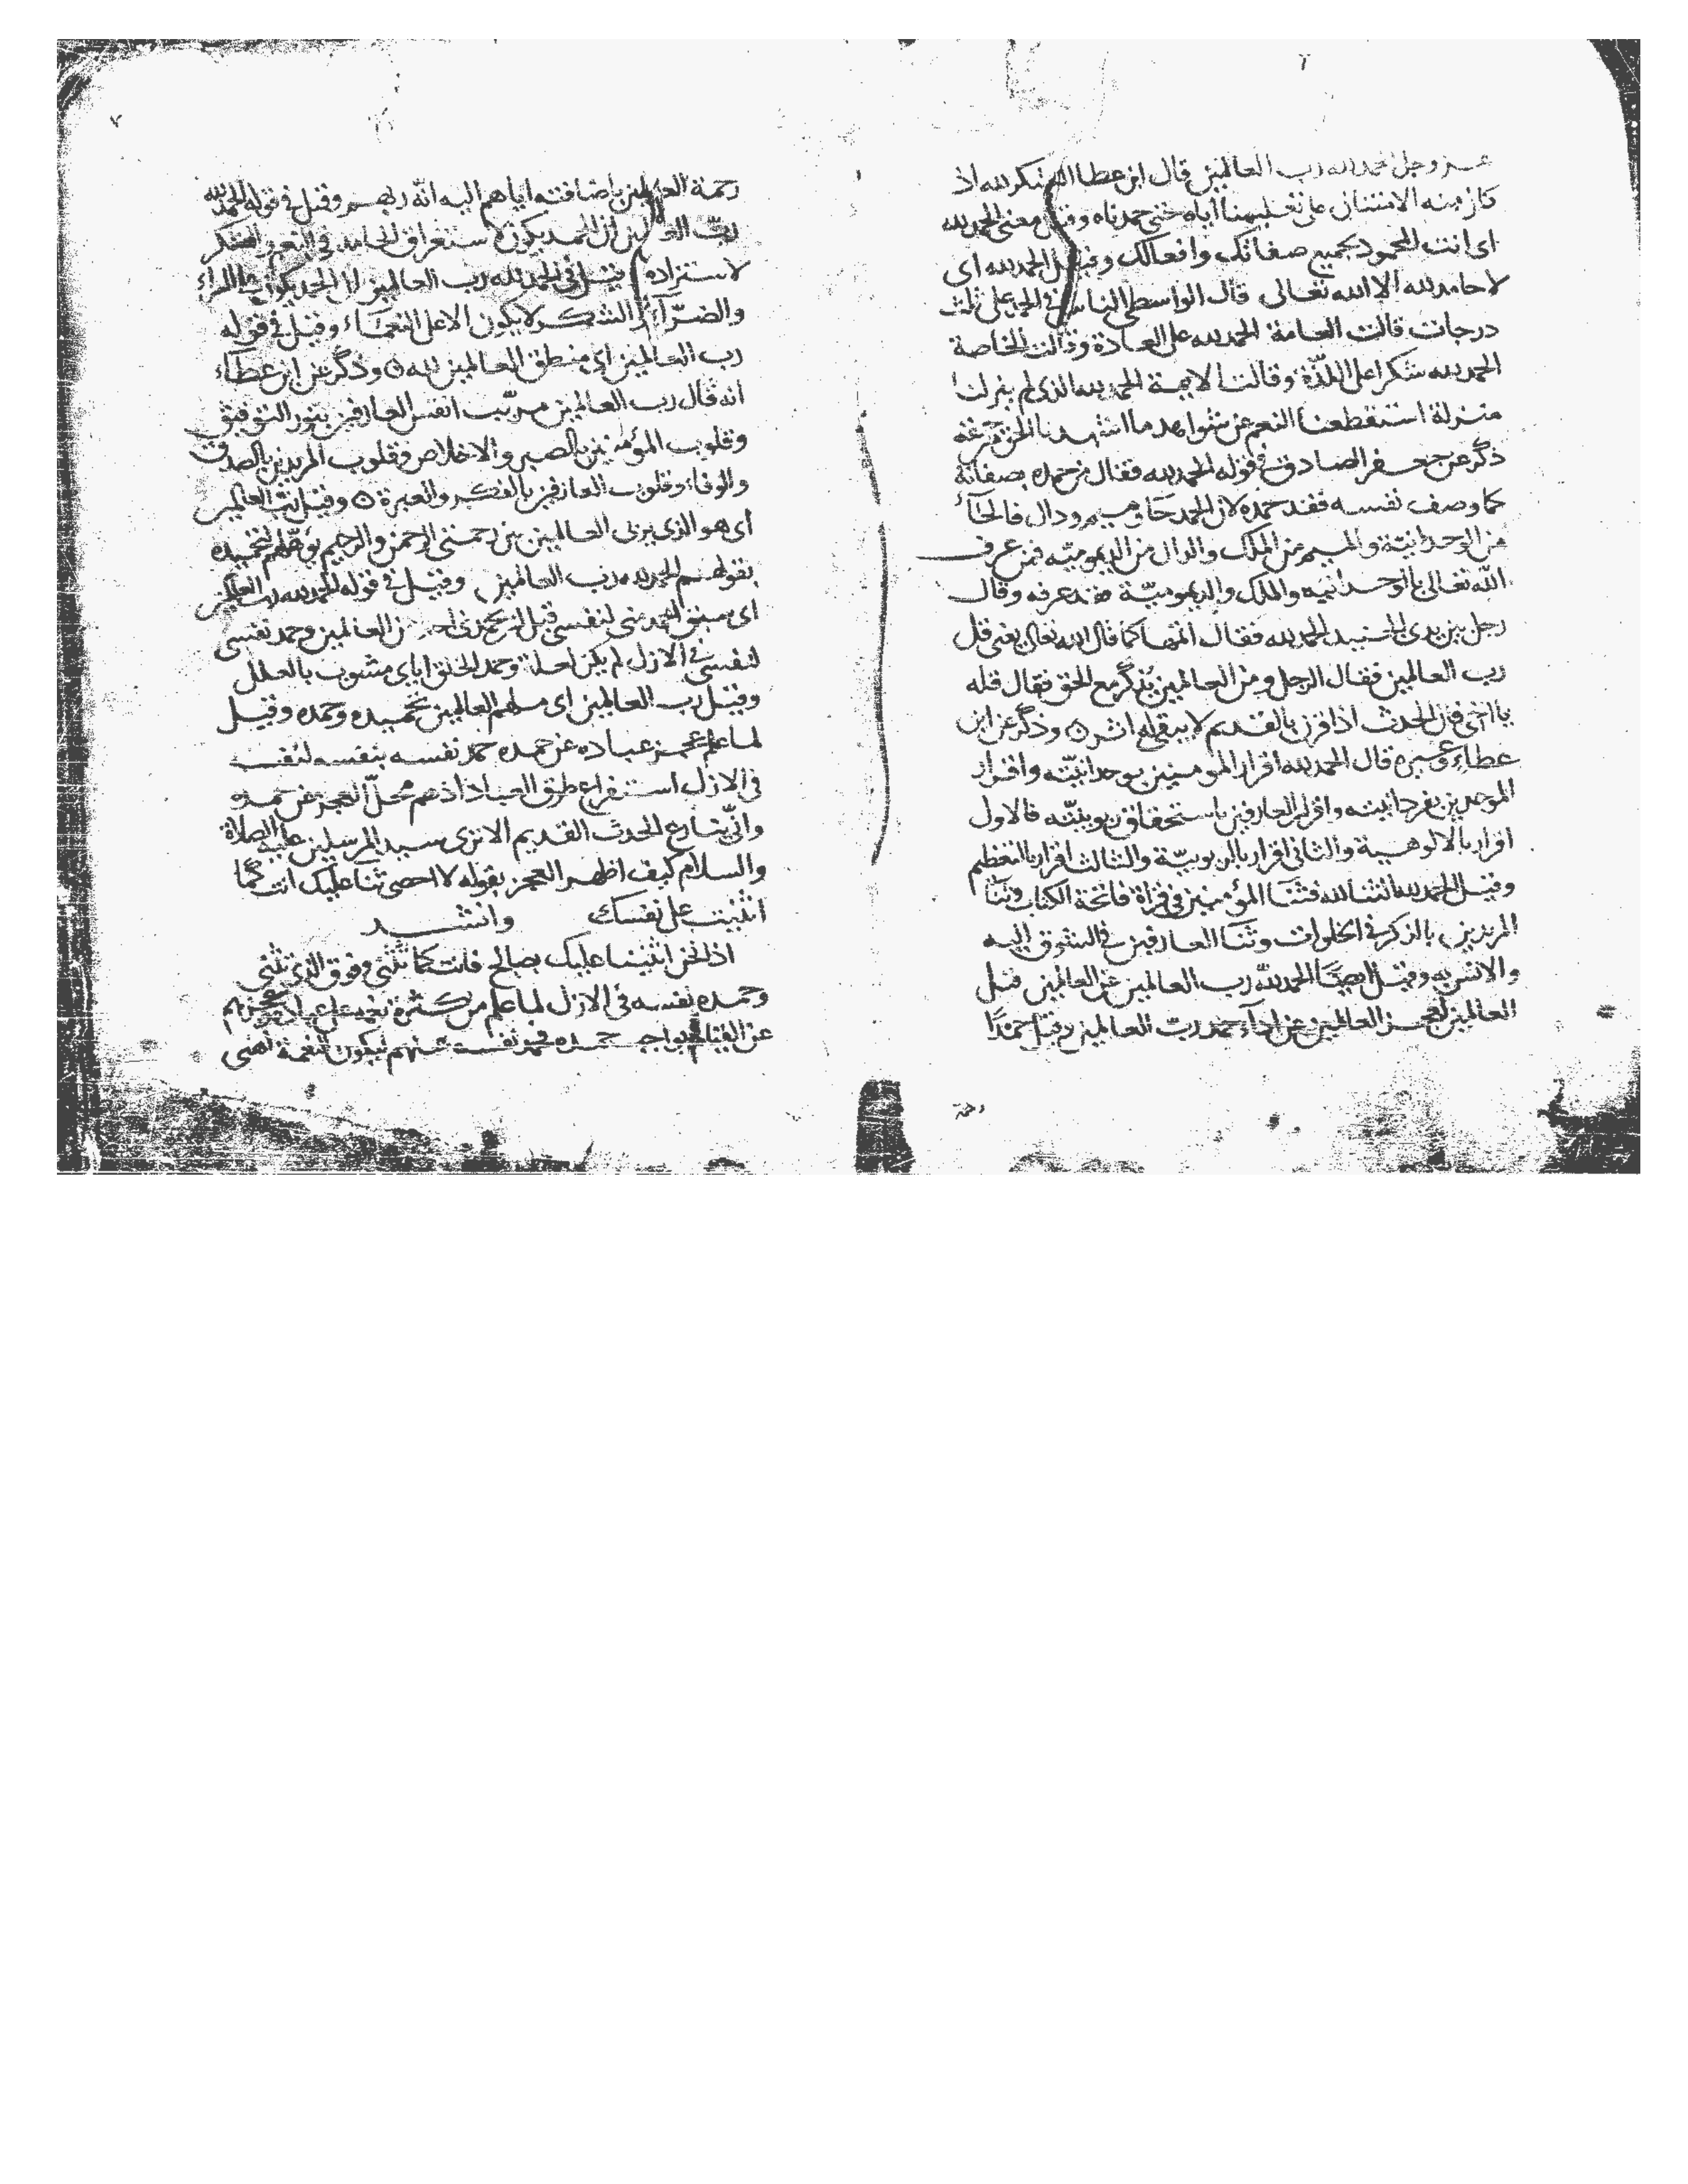 عز وجل الحمد لله رب العالمين قال ابن عطا الشكر لله اذ
كان منه الامتنان على تعليمنا اياه حتى حمدناه وقيل معنى الحمد لله
اى انت المحمود بجميع صفاتك وافعالك وقيل الحمد لله اى
لا حامد لله الا الله تعالى قال الواسطى الناس فى الحمد على ثلث
درجات قالت العامة الحمد لله على العادة وقالت الخاصة
الحمد لله شكرا على اللذّة وقالت الايمة الحمد لله الذى لم ينزلنا
منزلة استقطعنا النعم عن شواهد ما اشهدنا الحق من حقه
ذكر عن جعفر الصادق فى قوله الحمد لله فقال من حمده بصفاته
كما وصف نفسه فقد حمده لان الحمد حا وميم ودال فالحآ
من الوحدانية والميم من الملك والدال من الديموميّه فمن عرف
الله تعالى بالوحدانيه والملك والديموميّة فقد عرفه وقال
رجل بين يدى الجنيد الحمد لله فقال اتمها كما قال الله تعالى يعنى قل
رب العالمين فقال الرجل ومن العالمين يُذكر مع الحق فقال قله
يا اخى فان المحدث اذا قرن بالقديم لا يبقى له اثر ۞ وذكر عن ابن
عطاء وغيره قال الحمد لله اقرار المومنين بوحدانيّته واقرار
الموحدين بفردانيته واقرار العارفين باستحقاق ربوبيّته فالاول
اقرار بالالوهيبة والثانى اقرار بالربوبيّة والثالث اقرار بالتعظيم
وقيل الحمد لله الثنا لله فثنا المؤمنين فى قراة فاتحة الكتاب وثنا
المريدين بالذكر فى الخلوات وثنا العارفين فى الشوق اليه
والانس به وقيل ايضا الحمد لله رب العالمين عن العالمين قبل
العالمين لعجز العالمين عن ادآء حمد ربّ العالمين وقيل حمدًا
رحمة العالمين باضافته اياهم اليه انّه ربهم وقيل فى قوله الحمد لله
ربّ العالمين ان الحمد يكون لاستغراق الحامد فى النعم والشكر
لاستزاده وقيل فى الحمد لله رب العالمين ان الحمد يكون على السراء
والضرّآء والشكر لا يكون الا على النعمآء وقيل فى قوله
رب العالمين اى منطق العالمين لله ۞ وذكر عن ابن عطاء
انه قال رب العالمين مربّيب انفس العارفين بنور التوفيق
وقلوب المؤمنين بالصبر والاخلاص وقلوب المريدين بالصدق
والوفاء وقلوب العارفين بالفكر والعبرة ۞ وقيل رب العالمين
اى هو الذى يربى العالمين بين رحمتى الرحمن والرحيم لتحميده
بقولهم الحمد لله رب العالمين وقيل فى قوله الحمد لله رب العالمين
اى سبق الحمد منى لنفسى قبل ان يحمدنى احد من العالمين وحمد نفسى
لنفسى فى الازل لم يكن لعلة وحمد الخلق اياى مشوب بالعلل
وقيل رب العالمين اى ملهم العالمين تحميده وحمده وقيل
لما علم عجز عباده عن حمده حمد نفسه بنفسه لنفسه
فى الازل استفراغ طوق العباد اذ هم محلّ العجز عن حمده
وانّى ينازع المحدث القديم الا ترى سيد المرسلين عليه الصلاة
والسلام كيف اظهر العجز بقوله لا احصى ثنا عليك انت كما
اثنيت على نفسك وانشد
اذا نحن اثنينا عليك بصالح فانت كما نُثنى وفوق الذى نثنى
وحمده نفسه فى الازل لما علم من كثرة نعمه على عباده وعجزهم
عن القيام بواجب حمده فحمد نفسه عنهم ليكون النعمة اهنى